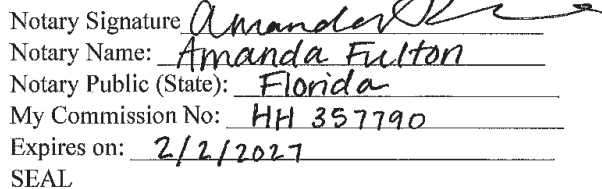 Notary Signature Amanda
Notary Name: Amanda Fulton
Notary Public (State): Florida
My Commission No: HH 357790
Expires on: 2/2/2027
SEAL